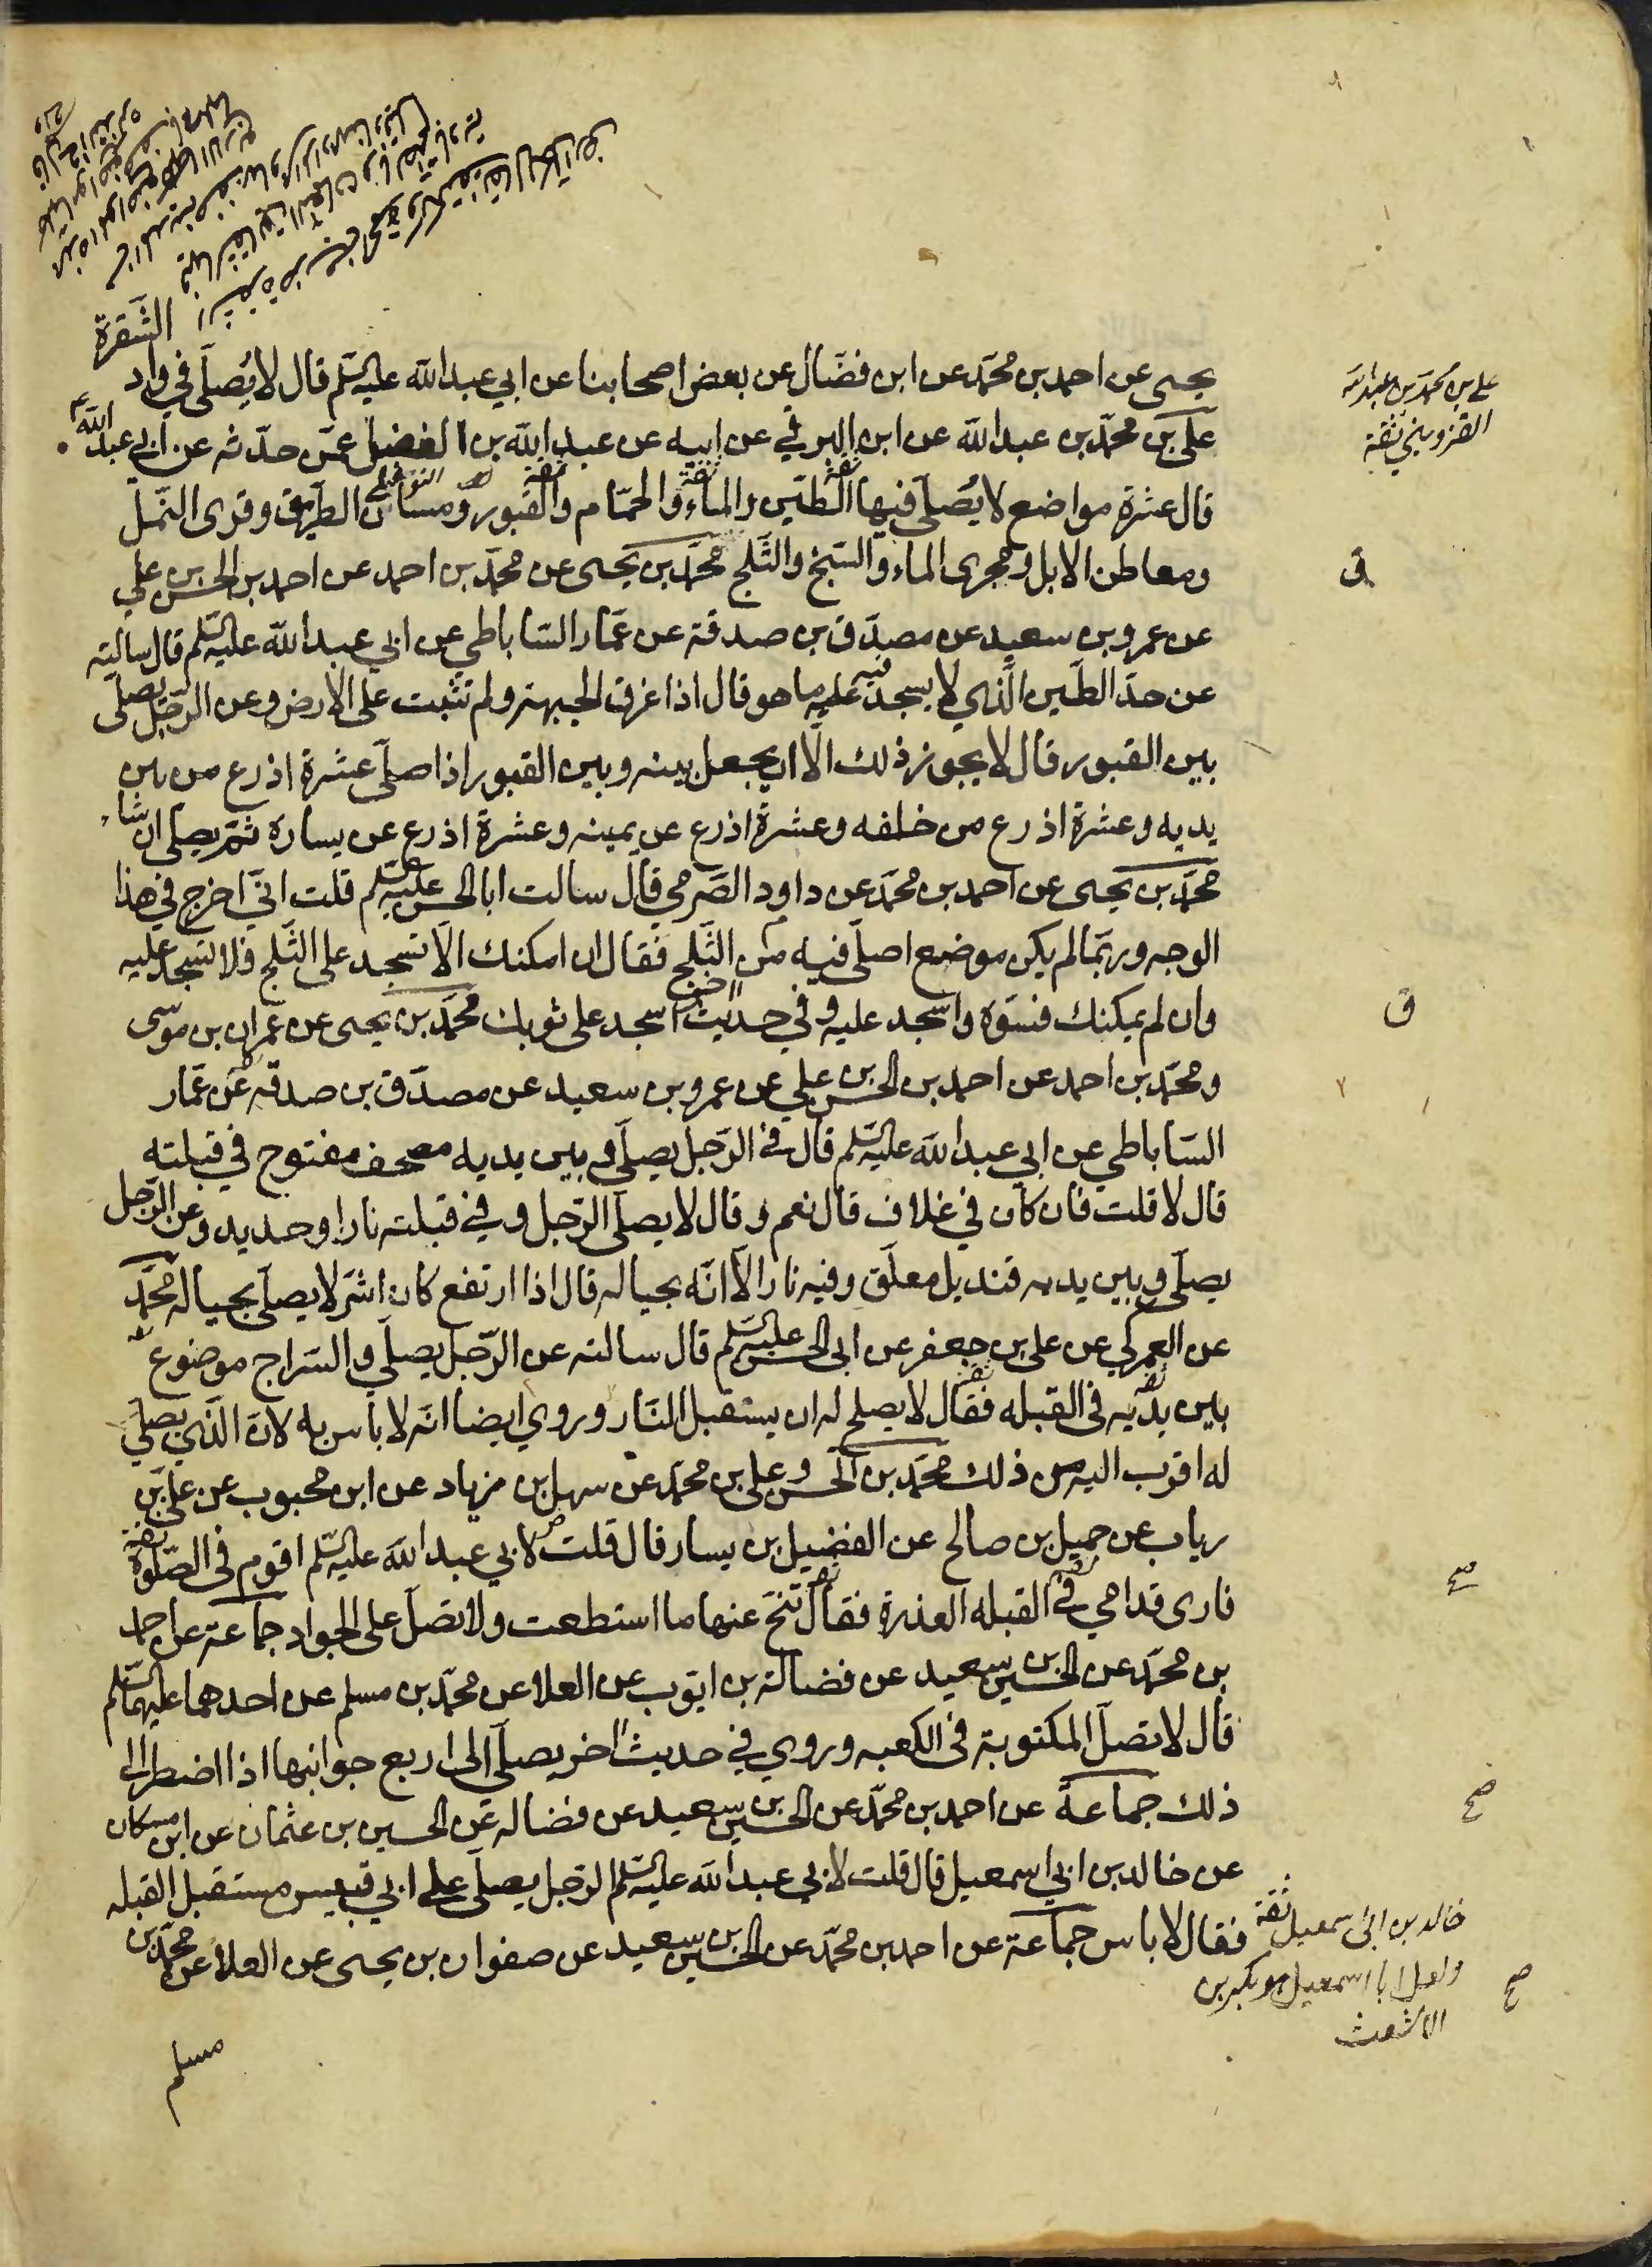 الشقرة
يحيى عن احمد بن محمّد عن ابن فضّال عن بعض اصحابنا عن ابي عبد الله عليه السّلم قال لا يُصلّى في واد
علي بن محمّد بن عبد الله عن ابن البرقي عن ابيه عن عبد الله بن الفضل عمّن حدّثه عن ابي عبد الله ع
قال عشرة مواضع لا يُصلّى فيها الطّين والماء والحمّام والقبور ومسانّ الطريق وقرى النّمل
ومعاطن الابل ومجرى الماء والسّبخ والثّلج محمّد بن يحيى عن محمّد بن احمد عن احمد بن الحسن بن علي
عن عمرو بن سعيد عن مصدّق بن صدقة عن عمّار السّاباطي عن ابي عبد الله عليه السّلم قال سالته
عن حدّ الطّين الّذي لا يسجد فيه عليه ما هو قال اذا غرقت الجبهة ولم تثبت على الارض وعن الرّجل يصلّى
بين القبور قال لا يجوز ذلك الّا ان يجعل بينه وبين القبور اذا صلّى عشرة اذرع من بين
يديه وعشرة اذرع من خلفه وعشرة اذرع عن يمينه وعشرة اذرع عن يساره ثمّ يصلي ان شاء
محمّد بن يحيى عن احمد بن محمّد عن داود الصّرمي قال سالت ابا الحسن عليه السّلم قلت انّي اخرج في هذا
الوجه وربّما لم يكن موضع اصلّى فيه من الثّلج فقال ان امكنك الّا تسجد على الثّلج فلا تسجد عليه
وان لم يمكنك فسوّه واسجد عليه وفي حديث اخر اسجد على ثوبك محمّد بن يحيى عن عمران بن موسى
ومحمّد بن احمد عن احمد بن الحسن بن علي عن عمرو بن سعيد عن مصدّق بن صدقه عن عمّار
السّاباطي عن ابي عبد الله عليه السّلم قال في الرّجل يصلّى وبين يديه مصحف مفتوح في قبلته
قال لا قلت فان كان في غلاف قال نعم وقال لا يصلى الرّجل وفي قبلته نار او حديد وعن الرّجل
يصلّى وبين يديه قنديل معلّق وفيه نار الّا انّه بحياله قال اذا ارتفع كان اشرّ لا يصلّى بحياله محمّد
عن العمركي عن علي بن جعفر عن ابي الحسن عليه السّلم قال سالته عن الرّجل يصلّي والسّراج موضوع
بين يديه في القبله فقال لا يصلح له ان يستقبل النّار وروي ايضا انّه لا باس به لانّ الّذي يصلّي
له اقرب اليه من ذلك محمّد بن الحسن وعلي بن محمّد عن سهل بن زياد عن ابن محبوب عن علي بن
رياب عن جميل بن صالح عن الفضيل بن يسار قال قلت لابي عبد الله عليه السّلم اقوم في الصّلوة
فارى قدامي في القبله العذرة فقال تنحّ عنها ما استطعت ولا تصلّ على الجواد جماعة عن احمد
بن محمّد عن الحسين بن سعيد عن فضالة بن ايّوب عن العلا عن محمّد بن مسلم عن احدهما عليهما السّلم
قال لا تصلّ المكتوبة في الكعبه وروي في حديث اخر يصلّي الى اربع جوانبها اذا اضطر الى
ذلك جماعة عن احمد بن محمّد عن الحسين بن سعيد عن فضاله عن الحسين بن عثمان عن ابن مسكان
عن خالد بن ابي اسمعيل قال قلت لابي عبد الله عليه السّلم الرّجل يصلّى على ابي قبيس مستقبل القبله
فقال لا باس جماعة عن احمد بن محمّد عن الحسين بن سعيد عن صفوان بن يحيى عن العلاء عن محمّد بن
مسلم
علي بن محمد بن عبد الله
القزويني ثقة
ق
ق
صح
صح
خالد بن ابي اسمعيل ثقة
ولعل ابا اسمعيل هو بكر بن
الاشعث
صح